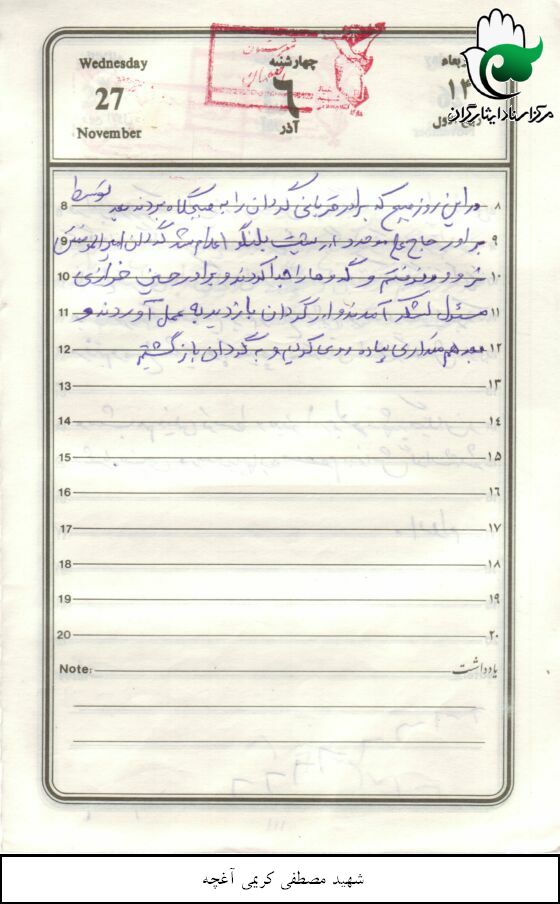 Wednesday
27
November
چهارشنبه
۶
آذر
اربعاء
۱۴
ربیع الاول
مرکز اسناد ایثارگران
شهرستان
در این روز صبح که برادر قربانی گردان را به صبحگاه بردند بعد توسط
8 ۸
برادر حاج علی موحد از پشت بلندگو اعلام شد گردان امیرالمومنین
9 ۹
و گروهها را جدا کردند و برادر حسین خرازی
10 ۱۰
مسئول لشکر آمدند و از گردان بازدید به عمل آوردند و
11 ۱۱
بعد هم مقداری پیاده روی کردیم و به گردان بازگشتیم
12 ۱۲
13 ۱۳
14 ۱۴
15 ۱۵
16 ۱۶
17 ۱۷
18 ۱۸
19 ۱۹
20 ۲۰
Note: یادداشت
شهید مصطفی کریمی آغچه